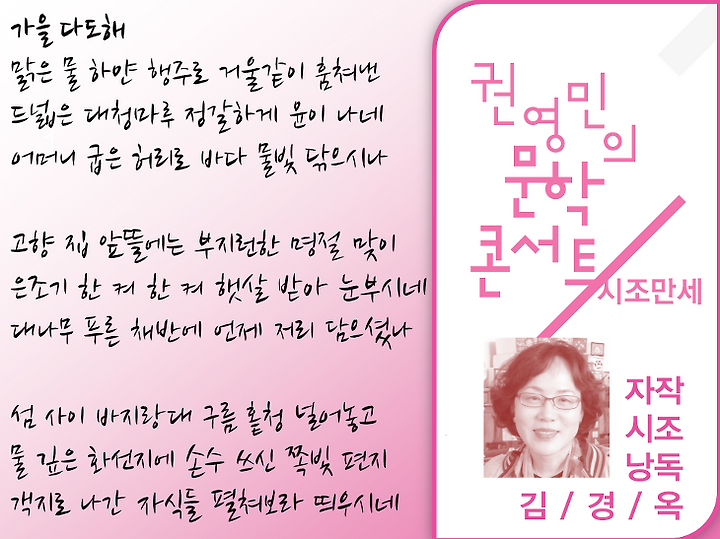 가을 다도해
맑은 물 하얀 행주로 거울같이 훔쳐낸
드넓은 대청마루 정갈하게 윤이 나네
어머니 굽은 허리로 바다 물빛 닦으시나
고향 집 앞뜰에는 부지런한 명절 맞이
은조기 한 켜 한 켜 햇살 받아 눈부시네
대나무 푸른 채반에 언제 저리 담으셨나
섬 사이 바지랑대 구름 홑청 널어놓고
물 깊은 화선지에 손수 쓰신 쪽빛 편지
객지로 나간 자식들 펼쳐보라 띄우시네
권영민의
문학
콘서트
시조만세
자작
시조
낭독
김 / 경 / 옥